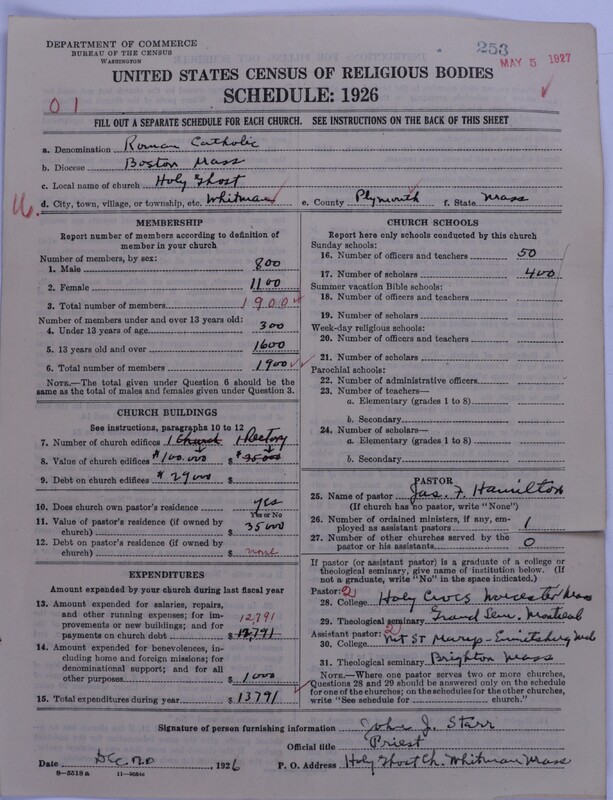 DEPARTMENT OF COMMERCE
BUREAU OF THE CENSUS
WASHINGTON
253
MAY 5 1927
UNITED STATES CENSUS OF RELIGIOUS BODIES
SCHEDULE: 1926
01
FILL OUT A SEPARATE SCHEDULE FOR EACH CHURCH. SEE INSTRUCTIONS ON THE BACK OF THIS SHEET
a. Denomination Roman Catholic
b. Diocese Boston Mass
c. Local name of church Holy Ghost
d. City, town, village, or township, etc. Whitman e. County Plymouth f. State Mass
MEMBERSHIP
Report number of members according to definition of
member in your church
Number of members, by sex:
1. Male 800
2. Female 1100
3. Total number of members. 1900
Number of members under and over 13 years old:
4. Under 13 years of age 300
5. 13 years old and over 1600
6. Total number of members 1900
NOTE.—The total given under Question 6 should be the
same as the total of males and females given under Question 3.
CHURCH BUILDINGS
See instructions, paragraphs 10 to 12
7. Number of church edifices 1 Church 1 Rectory
8. Value of church edifices $100.000 $ $35000
9. Debt on church edifices $29000 $
10. Does church own pastor's residence yes
Yes or No
11. Value of pastor's residence (if owned by
church) $ 35000
12. Debt on pastor's residence (if owned by
church) $ none
EXPENDITURES
Amount expended by your church during last fiscal year
13. Amount expended for salaries, repairs,
and other running expenses; for im-
provements or new buildings; and for
payments on church debt 12,791
$ 12,791
14. Amount expended for benevolences, in-
cluding home and foreign missions; for
denominational support; and for all
other purposes $ 1000
15. Total expenditures during year $ 13791
CHURCH SCHOOLS
Report here only schools conducted by this church
Sunday schools:
16. Number of officers and teachers 50
17. Number of scholars 400
Summer vacation Bible schools:
18. Number of officers and teachers
19. Number of scholars
Week-day religious schools:
20. Number of officers and teachers
21. Number of scholars
Parochial schools:
22. Number of administrative officers
23. Number of teachers—
a. Elementary (grades 1 to 8)
b. Secondary
24. Number of scholars—
a. Elementary (grades 1 to 8)
b. Secondary
PASTOR
25. Name of pastor Jas. F. Hamilton
(If church has no pastor, write "None")
26. Number of ordained ministers, if any, em-
ployed as assistant pastors 1
27. Number of other churches served by the
pastor or his assistants 0
If pastor (or assistant pastor) is a graduate of a college or
theological seminary, give name of institution below. (If
not a graduate, write "No" in the space indicated.)
Pastor: 2
28. College Holy Cross Worcester Mass
29. Theological seminary Grand Sem. Montreal
Assistant pastor: 2
30. College Mt St Marys - Emmitsburg Md
31. Theological seminary Brighton Mass
NOTE.—Where one pastor serves two or more churches,
Questions 28 and 29 should be answered only on the schedule
for one of the churches; on the schedules for the other churches,
write "See schedule for church."
Signature of person furnishing information John J. Starr
Official title Priest
Date Dec. 20, 1926 P. O. Address Holy Ghost Ch. Whitman Mass
8—5518 a